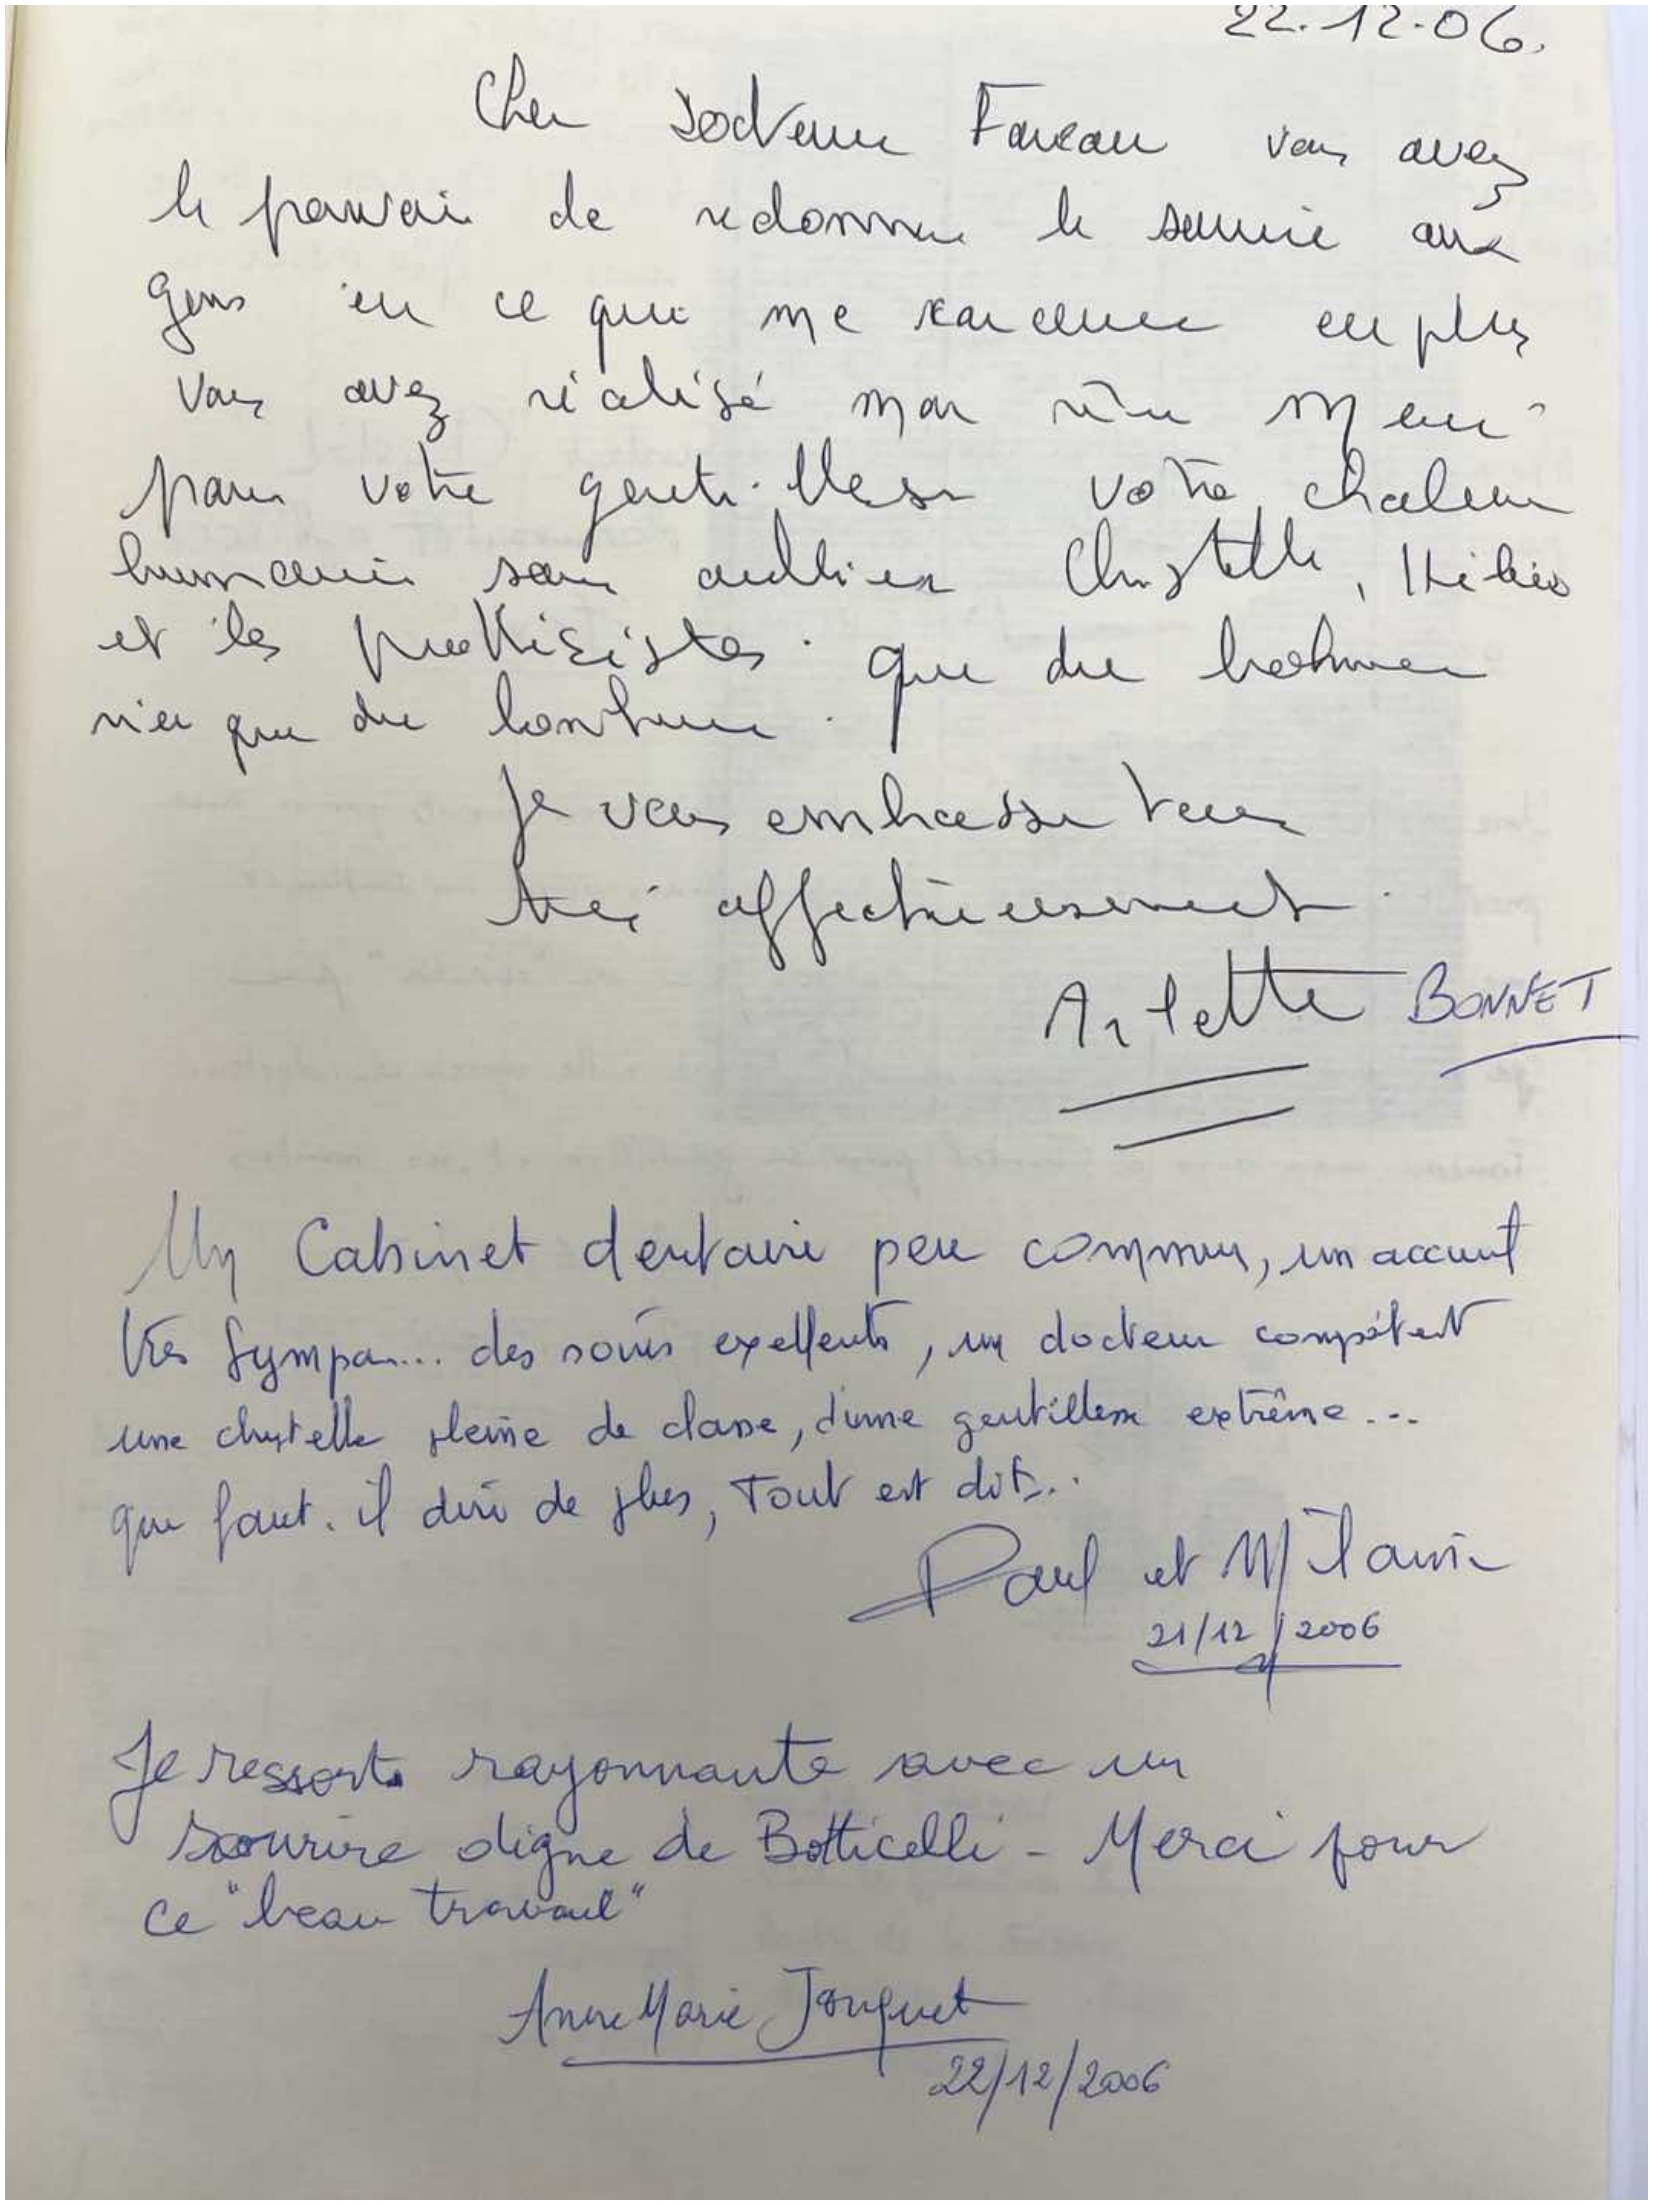 22.12.06.
Cher Docteur Fareau vous avez
le pouvoir de redonner le sourire aux
gens en ce qui me concerne en plus
vous avez réalisé mon rêve Merci
pour votre gentillesse votre chaleur
humaine sans oublier Christelle,
et les prothésistes. que du bonheur
rien que du bonheur.
Je vous embrasse tous
très affectueusement.
Arlette BONNET
Un Cabinet dentaire peu commun, un accueil
très Sympa... des soins exellents, un docteur compétent
une chrystelle pleine de classe, d'une gentillesse extrême...
que faut-il dire de plus, Tout est dit...
Paul et
21/12/2006
Je ressorts rayonnante avec un
sourire digne de Botticelli - Merci pour
ce "beau travail"
Anne Marie Jouquet
22/12/2006